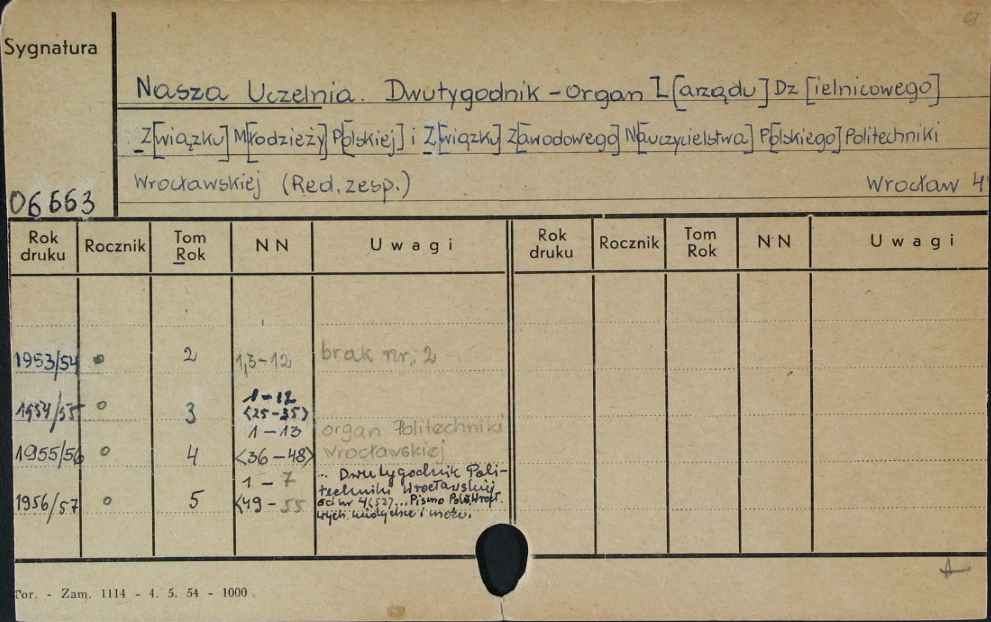 61
Sygnatura
Nasza Uczelnia. Dwutygodnik - organ Z[arządu] Dz[ielnicowego]
Z[wiązku] M[łodzieży] P[olskiej] i Z[wiązku] Z[awodowego] N[auczycielstwa] P[olskiego] Politechniki
Wrocławskiej (Red. zesp.) Wrocław 4
06663
Rok druku Rocznik Tom Rok NN Uwagi Rok druku Rocznik Tom Rok NN Uwagi
1953/54 2 1,3-12 brak nr. 2
1954/55 3 1-12 <25-35>
1955/56 4 1-13 <36-48> organ Politechniki Wrocławskiej
1956/57 5 1-7 <49-55 .. Dwutygodnik Poli-
techniki Wrocławskiej
od nr 4(52)... Pismo
i
Tor. - Zam. 1114 - 4. 5. 54 - 1000